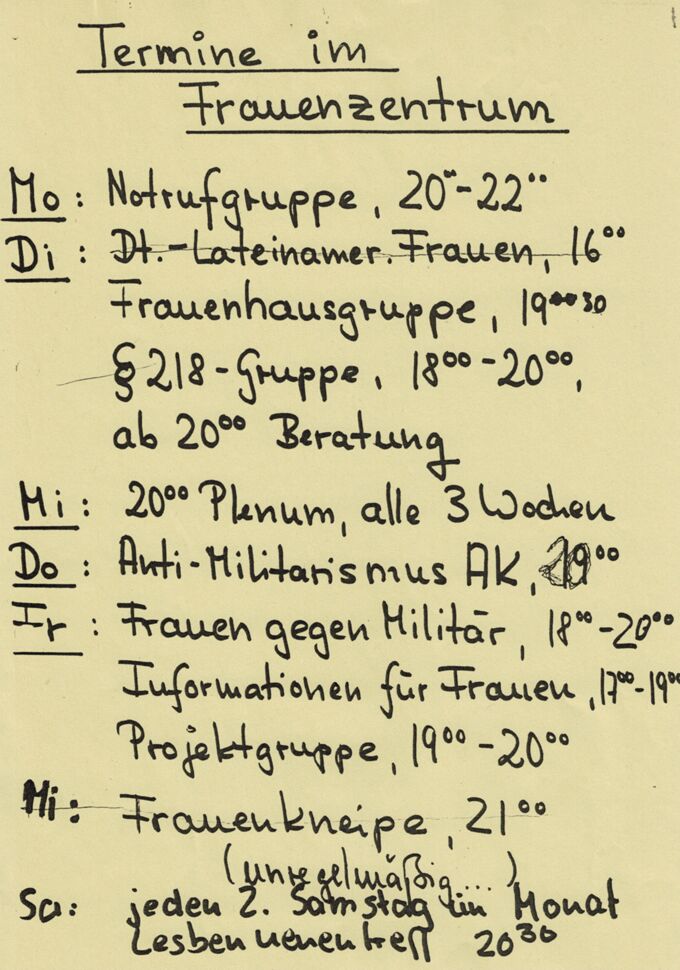 Termine im
Frauenzentrum
Mo: Notrufgruppe, 20°°-22°°
Di: Dt.-Lateinamer. Frauen, 16°°
Frauenhausgruppe, 19°° 30
§ 218-Gruppe, 18°°-20°°,
ab 20°° Beratung
Mi: 20°° Plenum, alle 3 Wochen
Do: Anti-Militarismus AK, 19°°
Fr: Frauen gegen Militär, 18°°-20°°
Informationen für Frauen, 17°°-19°°
Projektgruppe, 19°°-20°°
Mi: Frauenkneipe, 21°°
(unregelmäßig...)
Sa: jeden 2. Samstag im Monat
20³⁰